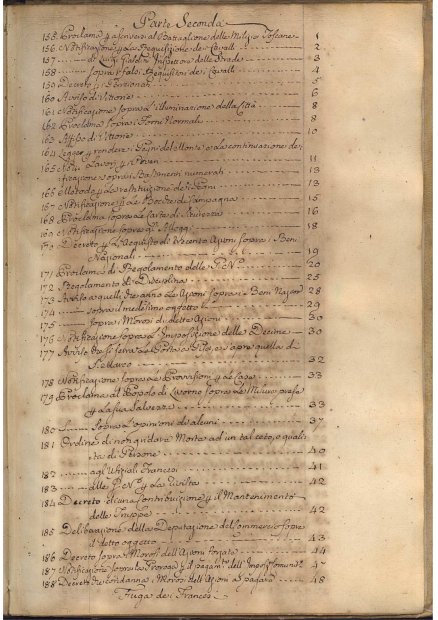 Parte Seconda
155 Proclama p ascriversi al Battaglione delle Milizie Toscane 1
156 Notificazione p La Requisizione de Cavalli 2
157 di Luigi Inspettore delle Strade 3
158 sopra i falsi Requisitori dei Cavalli 4
159 Decreto p i Pensionati 5
160 Avviso di Vittone 6
161 Notificazione sopra L'illuminazione della Città 8
162 Proclama sopra i Forni Normali 8
163 Affisso di Vittone 10
164 Legge p rendere i Pegni del Monte e la continuazione dei
165 Lavori p i Poveri 11
tificazione sopra i Bastimenti numerati 13
166 Metodo p La restituzione dei Pegni 13
167 Notificazione p Le Bocche di Campagna 15
168 Proclama sopra Le Carte di Sicurezza 16
169 Notificazione sopra gl' Alloggi 18
170 Decreto p L'Acquisto di Azioni sopra i Beni
Nazionali 19
171 Proclama di Regolamento delle 20
172 Regolamento di Disciplina 25
173 Avviso a quelli Le Azioni sopra i Beni Nazion 28
174 sopra il medesimo oggetto 29
175 sopra i Morosi di dette Azioni 30
176 Notificazione sopra L'Imposizione delle Decime 30
177 Avviso che si serra La Porta a Pisa, e s'apre quella di
S. Marco 32
178 Notificazione sopra Le Provvisioni p Le Case 33
179 Proclama al Popolo di Livorno sopra Le Misure prese
p La sua Salvezza 33
180 Sopra L'opinioni di alcuni 37
181 Ordine di non gridare Morte ad un tal ceto, o quali-
tà di Persone 40
182 agl'Uffiziali Francesi 41
183 alle p La Civiltà 42
184 Decreto di una Contribuzione p il Mantenimento
delle Truppe 42
185 Deliberazione della Deputazione del Commercio sopra
il detto oggetto 43
186 Decreto sopra i Morosi dell'Azioni forzate 44
187 Notificazione sopra La Proroga p il pagam.to dell' Imposi 47
188 Decreto di condanna i Morosi dell'Azioni a pagare 48
Fuga dei Francesi